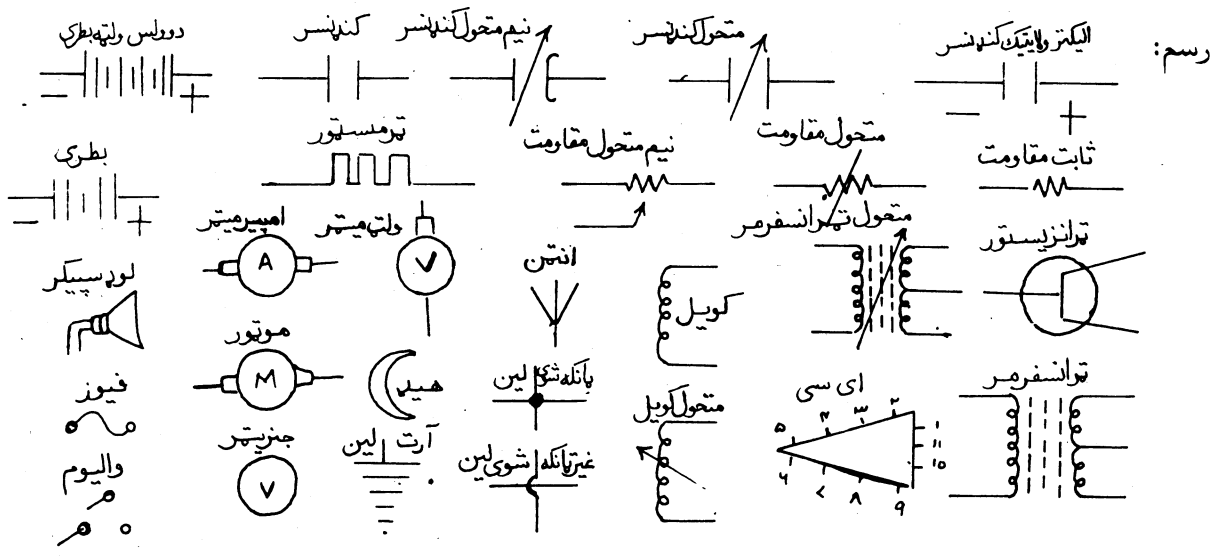 رسم:
الیکترولایتیک کندنسر
متحول کندنسر
نیم متحول کندنسر
کندنسر
دوولس ولټه بطری
ثابت مقاومت
متحول مقاومت
نیم متحول مقاومت
ترمستور
بطری
ترانزیستور
متحول ترانسفرمر
کویل
انتن
ولټ میټر
V
امپیر میټر
A
لوډسپیکر
ترانسفرمر
ای سی
۱ ۲ ۳ ۴ ۵ ۶ ۷ ۸ ۹ ۱۰ ۱۱
متحول کویل
لین
هیډ
موټور
M
فیوز
غیر
شوی لین
آرت لین
جنریټر
V
والیوم